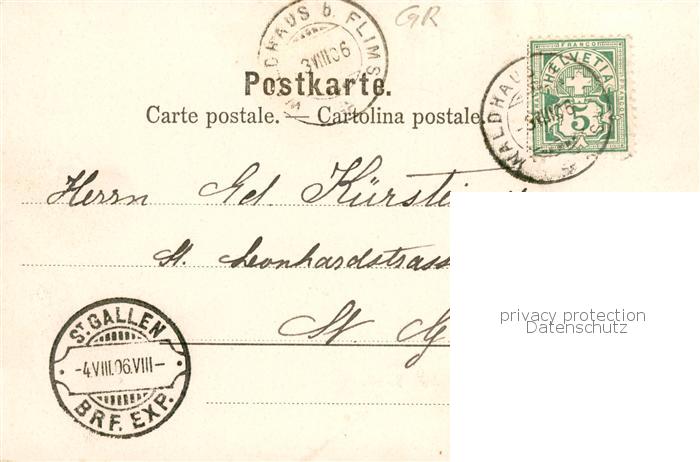 GR
WALDHAUS b. FLIMS
3VIII06
Postkarte.
Carte postale. — Cartolina postale.
FRANCO
HELVETIA
5
WALDHAUS
Herrn Ed. Kürstei
St. Leonhardstrass
St. G
ST. GALLEN
-4.VIII.06.VIII-
BRF. EXP.
privacy protection
Datenschutz